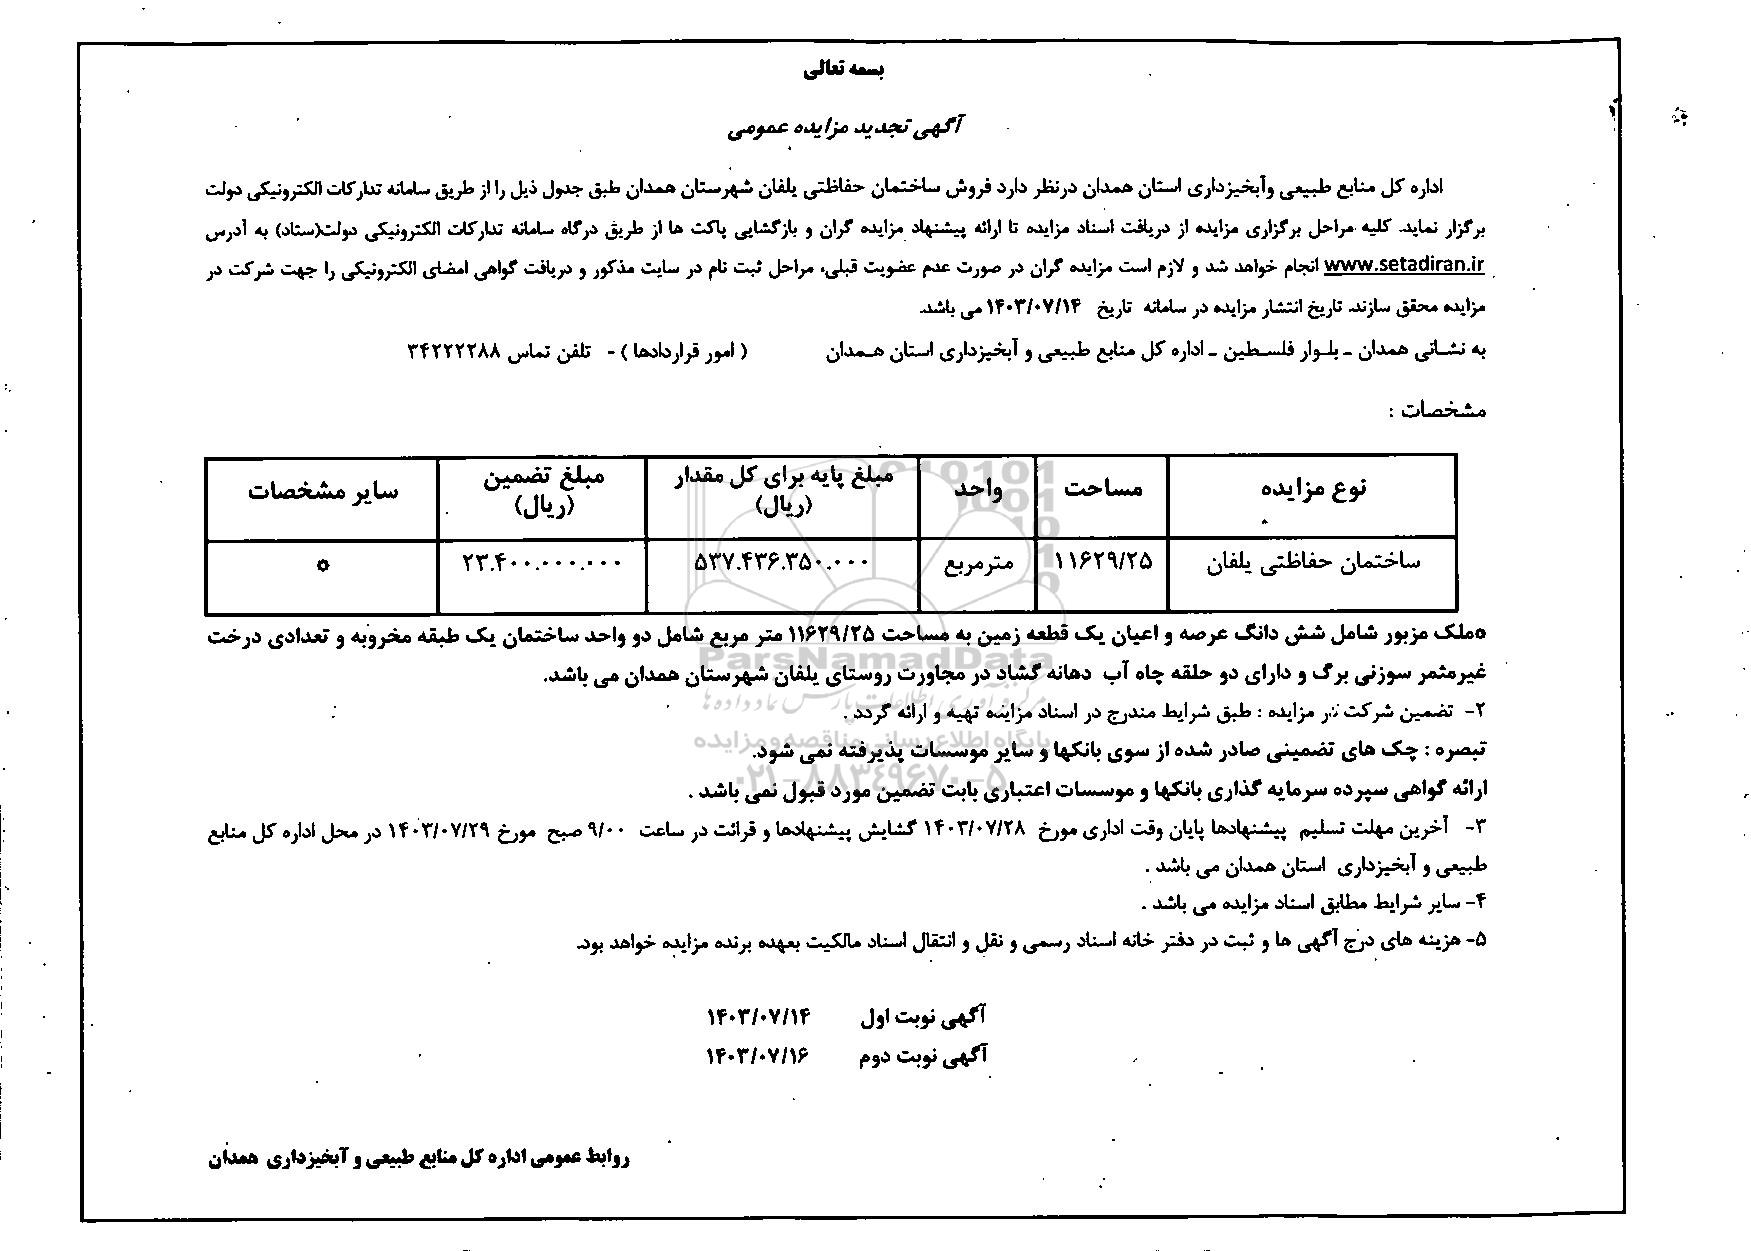 بسمه تعالی
آگهی تجدید مزایده عمومی
اداره کل منابع طبیعی وآبخیزداری استان همدان درنظر دارد فروش ساختمان حفاظتی یلفان شهرستان همدان طبق جدول ذیل را از طریق سامانه تدارکات الکترونیکی دولت
برگزار نماید. کلیه مراحل برگزاری مزایده از دریافت اسناد مزایده تا ارائه پیشنهاد مزایده گران و بازگشایی پاکت ها از طریق درگاه سامانه تدارکات الکترونیکی دولت(ستاد) به آدرس
www.setadiran.ir انجام خواهد شد و لازم است مزایده گران در صورت عدم عضویت قبلی، مراحل ثبت نام در سایت مذکور و دریافت گواهی امضای الکترونیکی را جهت شرکت در
مزایده محقق سازند. تاریخ انتشار مزایده در سامانه تاریخ ۱۴۰۳/۰۷/۱۴ می باشد.
به نشانی همدان ـ بلوار فلسطین ـ اداره کل منابع طبیعی و آبخیزداری استان همدان ( امور قراردادها ) - تلفن تماس ۳۴۲۲۲۲۸۸
مشخصات :
نوع مزایده مساحت واحد مبلغ پایه برای کل مقدار (ریال) مبلغ تضمین (ریال) سایر مشخصات
ساختمان حفاظتی یلفان ۱۱۶۲۹/۲۵ مترمربع ۵۳۷.۴۳۶.۳۵۰.۰۰۰ ۲۳.۴۰۰.۰۰۰.۰۰۰ ٥
٥ملک مزبور شامل شش دانگ عرصه و اعیان یک قطعه زمین به مساحت ۱۱۶۲۹/۲۵ متر مربع شامل دو واحد ساختمان یک طبقه مخروبه و تعدادی درخت
غیرمثمر سوزنی برگ و دارای دو حلقه چاه آب دهانه گشاد در مجاورت روستای یلفان شهرستان همدان می باشد.
۲- تضمین شرکت در مزایده : طبق شرایط مندرج در اسناد مزایده تهیه و ارائه گردد .
تبصره : چک های تضمینی صادر شده از سوی بانکها و سایر موسسات پذیرفته نمی شود.
ارائه گواهی سپرده سرمایه گذاری بانکها و موسسات اعتباری بابت تضمین مورد قبول نمی باشد .
۳- آخرین مهلت تسلیم پیشنهادها پایان وقت اداری مورخ ۱۴۰۳/۰۷/۲۸ گشایش پیشنهادها و قرائت در ساعت ۹/۰۰ صبح مورخ ۱۴۰۳/۰۷/۲۹ در محل اداره کل منابع
طبیعی و آبخیزداری استان همدان می باشد .
۴- سایر شرایط مطابق اسناد مزایده می باشد .
۵- هزینه های درج آگهی ها و ثبت در دفتر خانه اسناد رسمی و نقل و انتقال اسناد مالکیت بعهده برنده مزایده خواهد بود.
آگهی نوبت اول ۱۴۰۳/۰۷/۱۴
آگهی نوبت دوم ۱۴۰۳/۰۷/۱۶
روابط عمومی اداره کل منابع طبیعی و آبخیزداری همدان
ParsNamadData
پایگاه اطلاع رسانی مناقصه و مزایده
۰۲۱-۸۸۳۴۹۶۷۰-۵